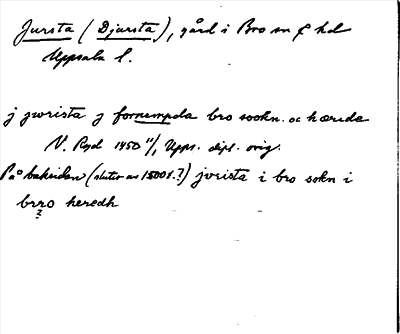 Jursta (Djursta), gård i Bro sn & hd
Uppsala l.
j jwrista j fornempda bro sookn. oc hærede
N. Ryd 1450 11/, Upps. dipl. orig.
På baksidan (slutet av 1500 t.?) jvrista i bro sokn i
brro heredh
?